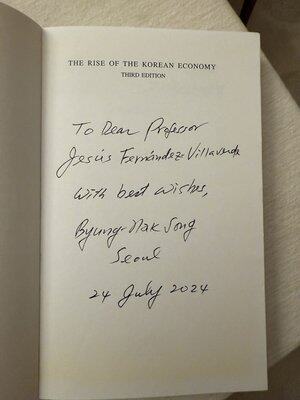 THE RISE OF THE KOREAN ECONOMY
THIRD EDITION
To Dear Professor
Jesús Fernández-Villaverde
With best wishes,
Byung-Nak Song
Seoul
24 July 2024